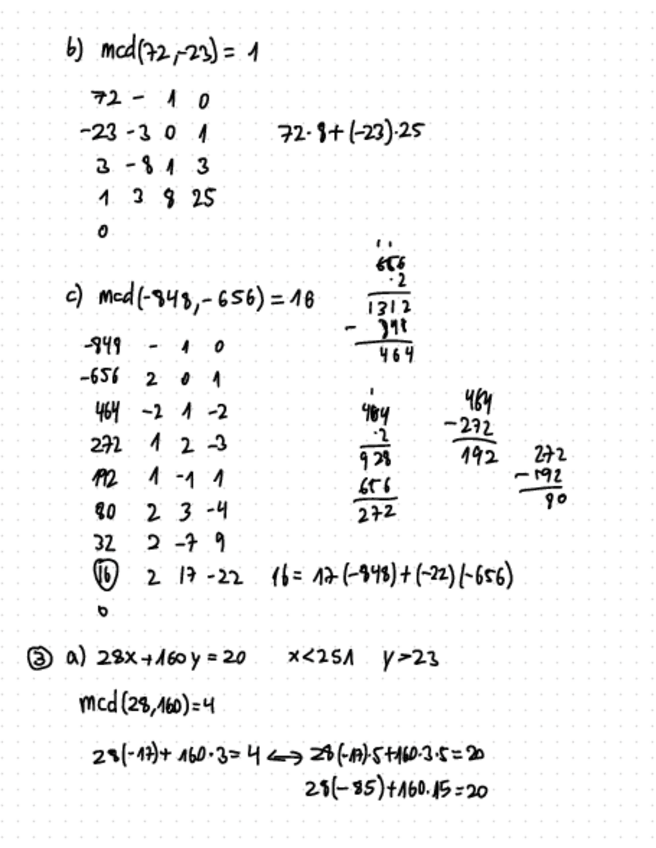 b) mcd(72,-23) = 1
72 - 1 0
-23 -3 0 1 72·8+(-23)·25
3 -8 1 3
1 3 8 25
0
c) mcd(-848,-656) = 16
-848 - 1 0
-656 2 0 1
464 -2 1 -2
272 1 2 -3
192 1 -1 1
80 2 3 -4
32 2 -7 9
16 2 17 -22 16 = 17(-848)+(-22)(-656)
0
1 1
656
·2
1312
- 848
464
1
464
·2
928
656
272
464
-272
192
272
-192
80
③ a) 28x+160y = 20 x<251 y>23
mcd(28,160)=4
28(-17)+160·3=4 ⟷ 28(-17)·5+160·3·5=20
28(-85)+160·15=20